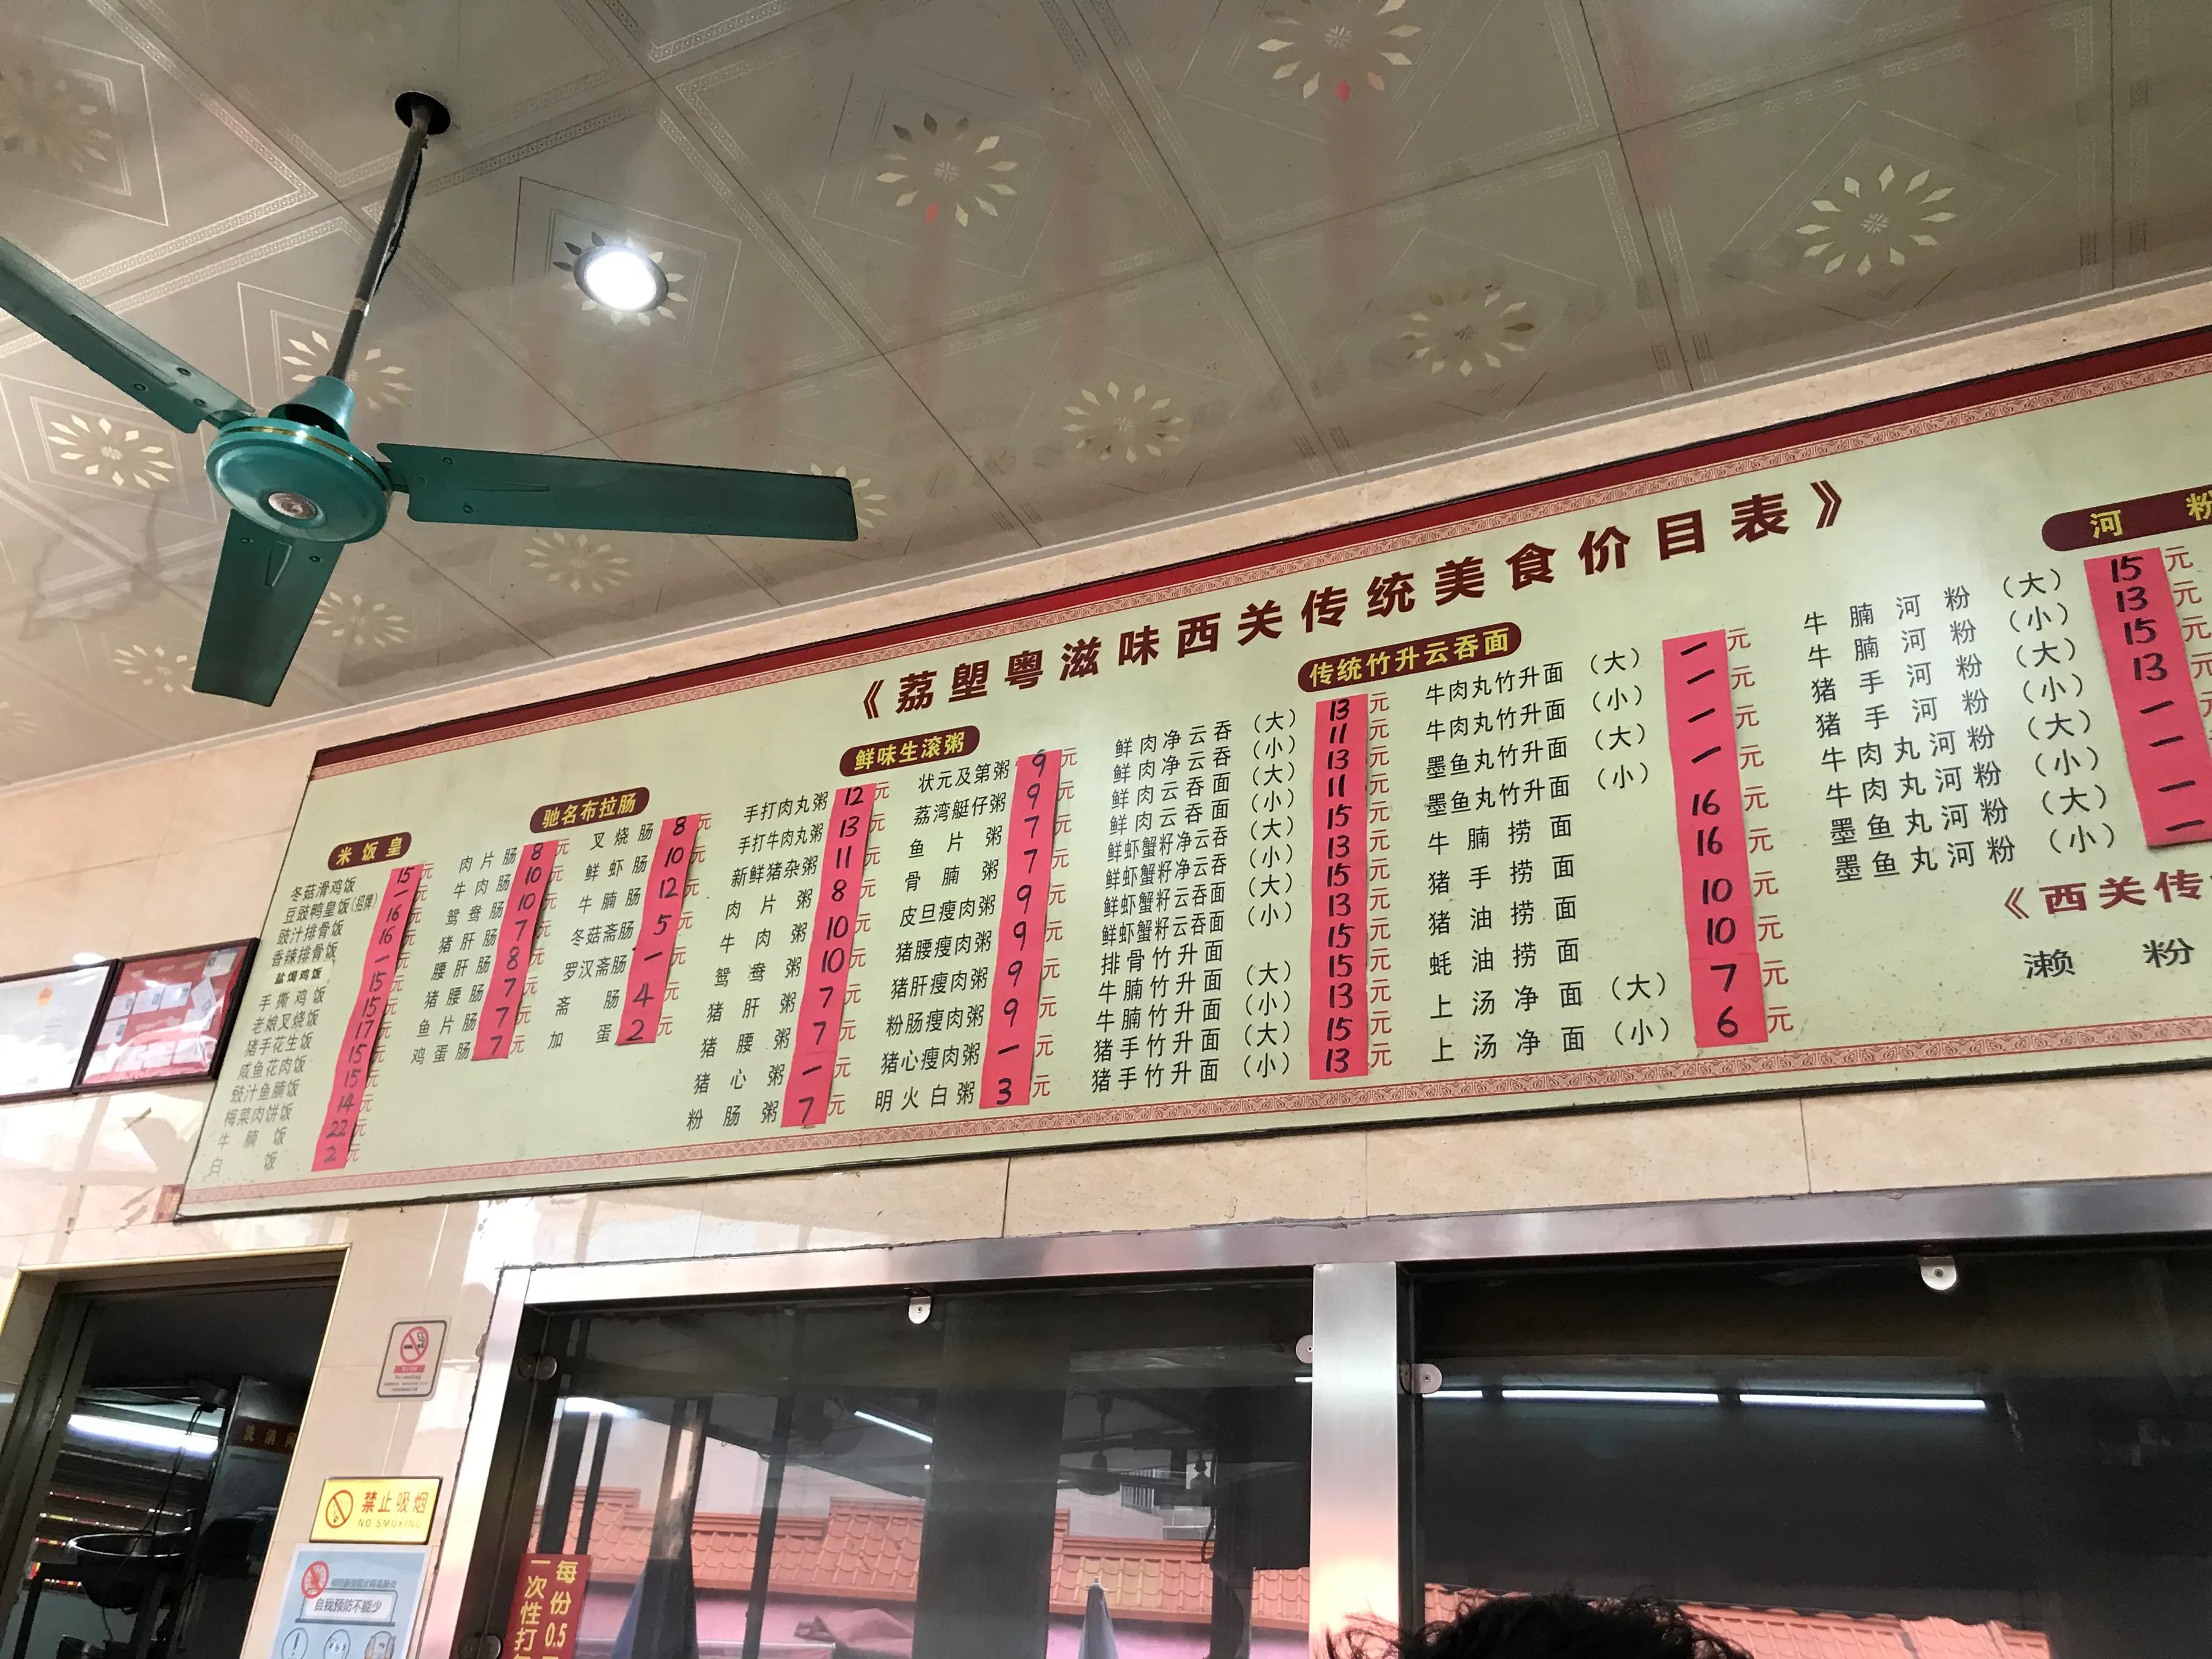 《荔塱粤滋味西关传统美食价目表》
米饭皇
冬菇滑鸡饭 15元
豆豉鸭皇饭(招牌) 一元
豉汁排骨饭 16元
香辣排骨饭 16元
盐焗鸡饭 一元
手撕鸡饭 15元
老娘叉烧饭 15元
猪手花生饭 17元
咸鱼花肉饭 15元
豉汁鱼腩饭 15元
梅菜肉饼饭 14元
牛腩饭 22元
白饭 2元
驰名布拉肠
肉片肠 8元
牛肉肠 10元
鸳鸯肠 10元
猪肝肠 7元
腰肝肠 8元
猪腰肠 7元
鱼片肠 7元
鸡蛋肠 7元
叉烧肠 8元
鲜虾肠 10元
牛腩肠 12元
冬菇斋肠 5元
罗汉斋肠 一元
斋肠 4元
加蛋 2元
鲜味生滚粥
手打肉丸粥 12元
手打牛肉丸粥 13元
新鲜猪杂粥 11元
肉片粥 8元
牛肉粥 10元
鸳鸯粥 10元
猪肝粥 7元
猪腰粥 7元
猪心粥 一元
粉肠粥 7元
状元及第粥 9元
荔湾艇仔粥 9元
鱼片粥 7元
骨腩粥 7元
皮旦瘦肉粥 9元
猪腰瘦肉粥 9元
猪肝瘦肉粥 9元
粉肠瘦肉粥 9元
猪心瘦肉粥 一元
明火白粥 3元
传统竹升云吞面
鲜肉净云吞(大) 13元
鲜肉净云吞(小) 11元
鲜肉云吞面(大) 13元
鲜肉云吞面(小) 11元
鲜虾蟹籽净云吞(大) 15元
鲜虾蟹籽净云吞(小) 13元
鲜虾蟹籽云吞面(大) 15元
鲜虾蟹籽云吞面(小) 13元
排骨竹升面 15元
牛腩竹升面(大) 15元
牛腩竹升面(小) 13元
猪手竹升面(大) 15元
猪手竹升面(小) 13元
牛肉丸竹升面(大) 一元
牛肉丸竹升面(小) 一元
墨鱼丸竹升面(大) 一元
墨鱼丸竹升面(小) 一元
牛腩捞面 16元
猪手捞面 16元
猪油捞面 10元
蚝油捞面 10元
上汤净面(大) 7元
上汤净面(小) 6元
河粉
牛腩河粉(大) 15元
牛腩河粉(小) 13元
猪手河粉(大) 15元
猪手河粉(小) 13元
牛肉丸河粉(大) 一
牛肉丸河粉(小) 一
墨鱼丸河粉(大) 一
墨鱼丸河粉(小) 一
《西关传
濑粉
No smoking
禁止吸烟
NO SMOKING
自我预防不能少
每份0.5
一次性打